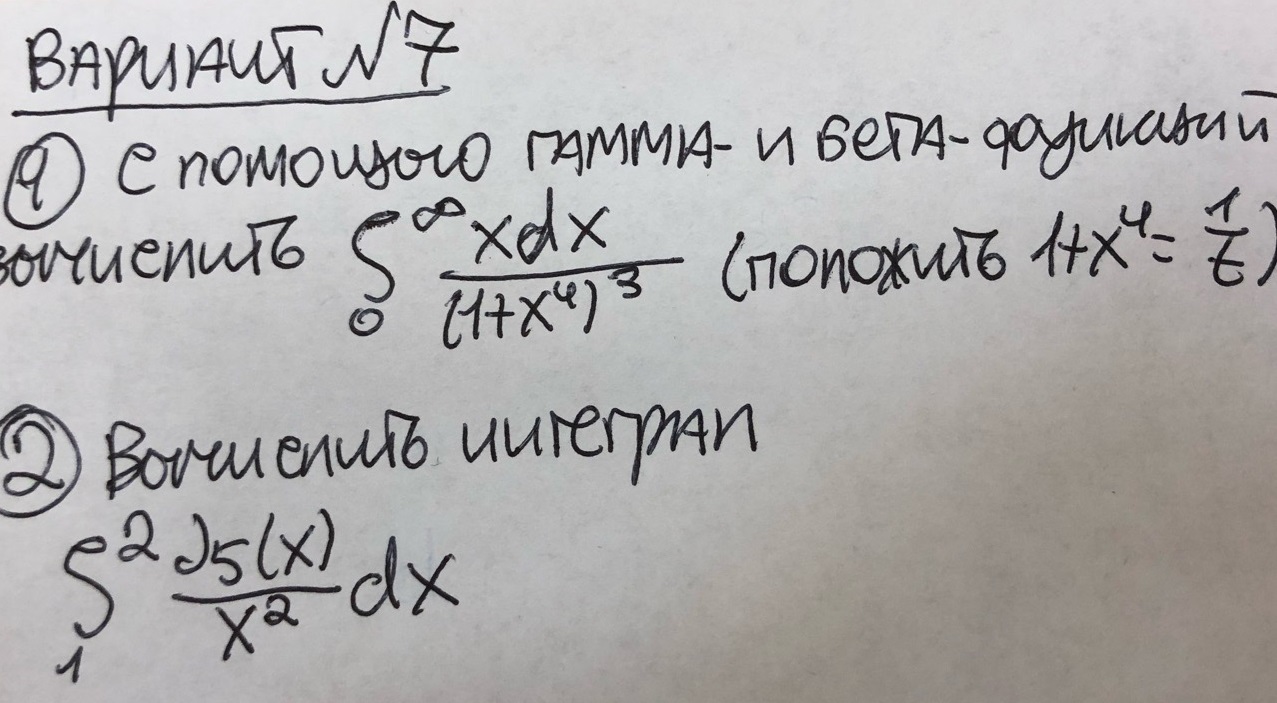 ВАРИАНТ №7
① С помощью ГАММА- и БЕТА-функций
вычислить ∫₀^∞ xdx/(1+x⁴)³ (положить 1+x⁴ = 1/t)
② Вычислить интеграл
∫₁² J₅(x)/x² dx